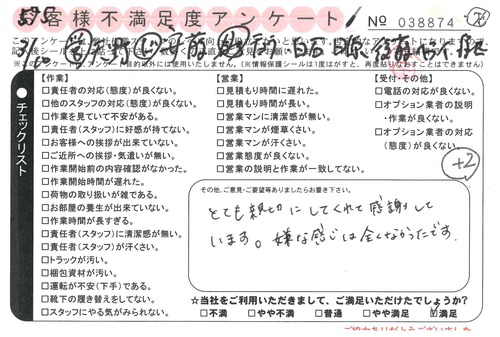 お客様不満足度アンケート No 038874
【作業】
□責任者の対応(態度)が良くない。
□他のスタッフの対応(態度)が良くない。
□作業を見ていて不安がある。
□責任者(スタッフ)に好感が持てない。
□お客様への挨拶が出来ていない。
□ご近所への挨拶・気遣いが無い。
□作業開始前の内容確認がなかった。
□作業開始時間に遅れた。
□荷物の取り扱いが雑である。
□お部屋の養生が出来ていない。
□作業時間が長すぎる。
□責任者(スタッフ)に清潔感が無い。
□責任者(スタッフ)が汗くさい。
□トラックが汚い。
□梱包資材が汚い。
□運転が不安(下手)である。
□靴下の履き替えをしてない。
□スタッフにやる気がみられない。
【営業】
□見積もり時間に遅れた。
□見積もり時間が長い。
□営業マンに清潔感が無い。
□営業マンが煙草くさい。
□営業マンが汗くさい。
□営業態度が良くない。
□営業の説明と作業が一致してない。
【受付・その他】
□電話の対応が良くない。
□オプション業者の説明
・作業が良くない。
□オプション業者の対応
(態度)が良くない。
+2
チェックリスト
その他、ご意見・ご要望等ありましたらお書き下さい。
とても親切にしてくれて感謝して
います。嫌な感じは全くなかったです。
☆当社をご利用いただきまして、ご満足いただけたでしょうか?
□不満 □やや不満 □普通 □やや満足 ☑満足
ご協力ありがとうございました